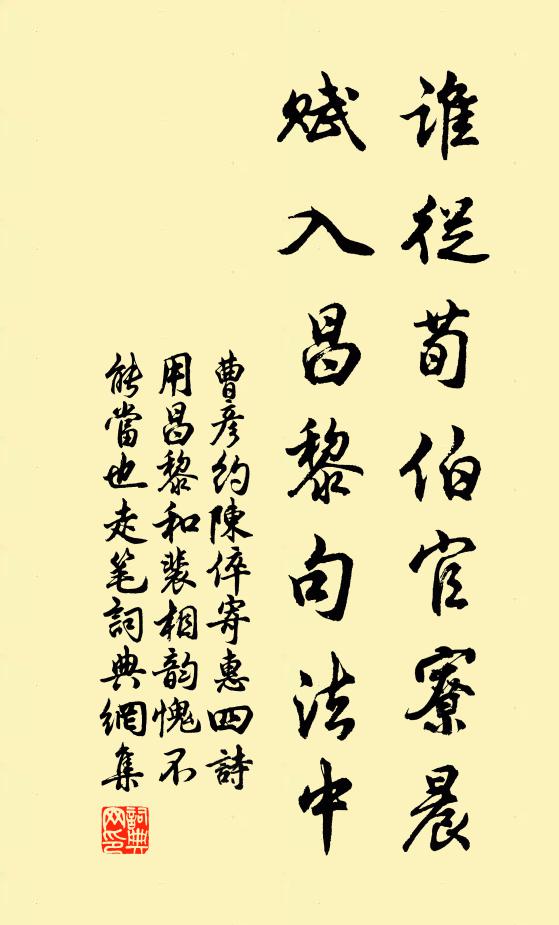 誰從荀伯官寮晨
賦入昌黎句法中
曹彦約陳倅寄惠四詩
用昌黎和裴相韵愧不
能當也走笔詞典網集
詞典
网印